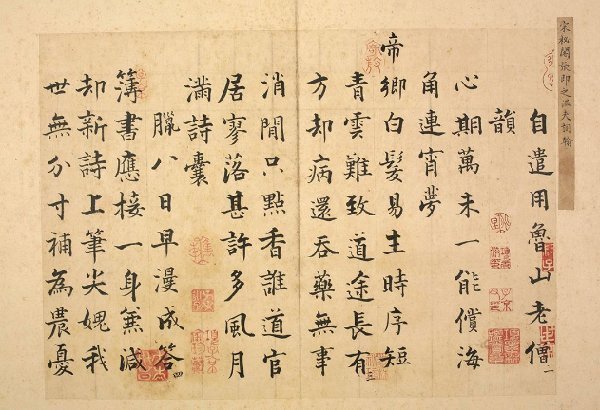 宋秘閣張即之溫夫詞翰
自遣用魯山老僧
一
韻
心期萬未一能償海
角連宵夢
帝鄉白髮易生時序短
青雲難致道途長有
三
方却病還吞藥無事
消閒只點香誰道官
居寥落甚許多風月
滿詩囊
臘八日早漫成答
四
簿書應接一身無減
却新詩上筆尖媿我
世無分寸補為農憂